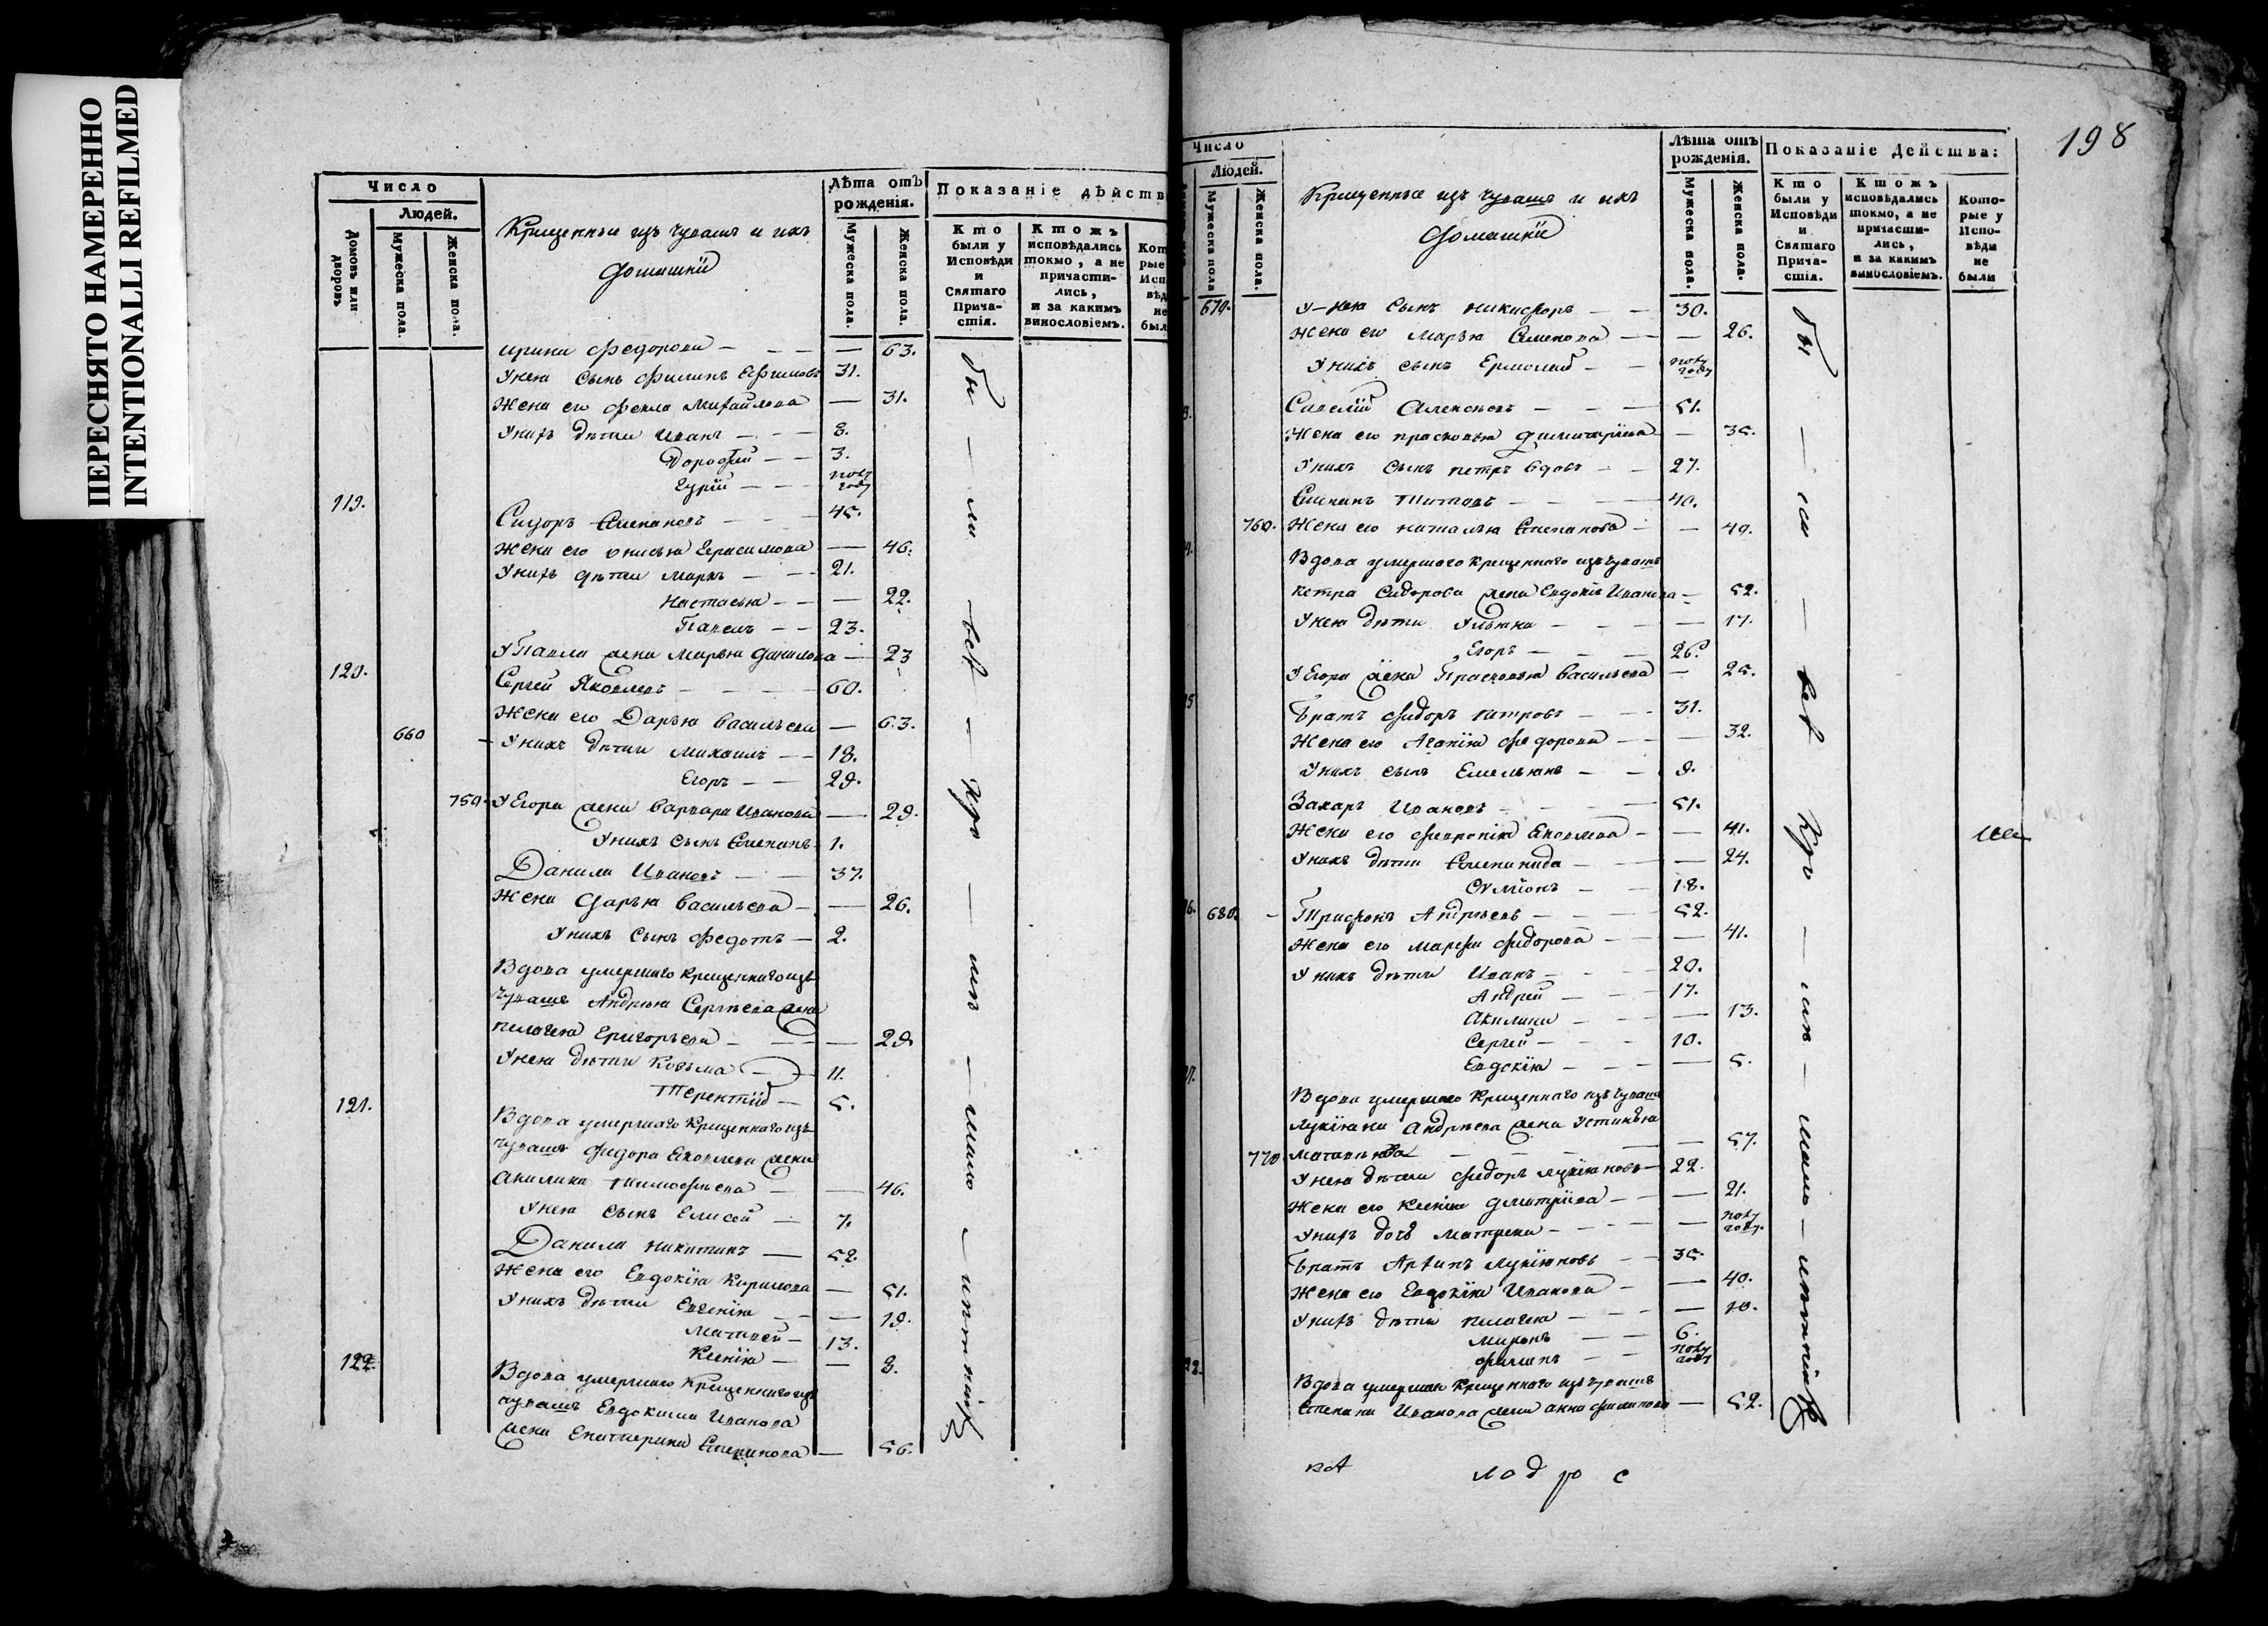 ПЕРЕСНЯТО НАМЕРЕННО
INTENTIONALLI REFILMED
Число
Людей.
Домовъ или дворовъ
Мужеска пола.
Женска пола.
Крещенныи изъ чувашъ и ихъ
домашнїи
Лѣта отъ рожденія.
Мужеска пола.
Женска пола.
Показаніе дѣйств
Кто были у Исповѣди и Святаго Причастія.
Ктожъ исповѣдались токмо, а не причастились, и за какимъ винословіемъ.
Кот рые Исп вѣд не был
ирина федорова — 63.
У нея сынъ Филипъ Ефимовъ 31.
Жена его фекла Михайлова — 31.
У нихъ дѣти Иванъ — 8.
Дорофей — 3.
Гурїй — полу году
119.
Сидоръ Степановъ — 45.
Жена его Герасимова — 46.
У нихъ дѣти Маркъ — 21.
Настасья — 22.
Павелъ — 23.
У Павла жена Марья данилова — 23
120.
Сергей Яковлевъ — 60.
Жена его Дарья васильева — 63.
660 У нихъ дѣти михаилъ — 18.
Егоръ — 29.
759. У Егора жена варвара Иванова — 29.
У нихъ сынъ Степанъ 1.
Данила Ивановъ — 37.
Жена дарья васильева — 26.
У нихъ сынъ федотъ — 2.
Вдова умершаго крещеннаго изъ
чувашъ Андрея Сергѣева жена
пелагея Григорьева — 29
У нея дѣти Козьма — 11.
Терентїй — 5.
121.
Вдова умершаго крещеннаго изъ
чувашъ Федора Яковлева жена
акилина тимофѣева — 46.
У нея сынъ Елисей — 7.
Данила никитинъ — 52.
Жена его Евдокїя Кирилова — 51.
У нихъ дѣти Евгенїя — 19.
Матвей — 13.
Ксенїя — 8.
122.
Вдова умершаго крещеннаго изъ
чувашъ Евдокима Иванова
жена Екатерина Степанова — 56.
бы — ли — всѣ — кро — мѣ — мало — лѣтнихъ
198
Число
Людей.
Мужеска пола
Женска пола.
Крещенные изъ чувашъ и ихъ
домашнїи
Лѣта отъ рожденія.
Мужеска пола.
Женска пола.
Показаніе Действа:
Кто были у Исповѣди и Святаго Причастія.
Ктожъ исповѣдались токмо, а не причастились, и за какимъ винословіемъ.
Которые у Исповѣди не были
679. У нея сынъ никифоръ — 30.
Жена его Марья Семенова — 26.
У нихъ сынъ Ермолай — полу году
Савелїй Алексѣевъ — 51.
Жена его прасковья димитрїева — 35.
У нихъ сынъ петръ вдовъ — 27.
Степанъ Титовъ — 40.
760. Жена его наталья Степанова — 49.
Вдова умершаго крещеннаго изъ чувашъ
петра Сидорова жена Евдокїя Иванова — 52.
У нея дѣти Ульяна — 17.
Егоръ — 26.
У Егора жена Прасковья васильева — 25.
Братъ Фидоръ петровъ — 31.
Жена его Агапїя федорова — 32.
У нихъ сынъ Емельянъ — 9.
Захаръ Ивановъ — 51.
Жена его февронїя Яковлева — 41.
У нихъ дѣти Степанида — 24.
Сѵмїонъ — 18.
680. Трифонъ Андрѣевъ — 52.
Жена его марѳа Фидорова — 41.
У нихъ дѣти Иванъ — 20.
Андрей — 17.
Акилина — 13.
Сергей — 10.
Евдокїя — 5.
Вдова умершаго крещеннаго изъ чувашъ
лукїяна андрѣева жена Устинья
770 — 57.
У нея дѣти Фидоръ лукїяновъ — 22.
Жена его Ксенїя дмитрїева — 21.
У нихъ дочь матрена — полу году.
Братъ Архипъ лукїяновъ — 35.
Жена его Евдокїя Иванова — 40.
У нихъ дѣти пелагея — 10.
миронъ — 6.
филипъ — полу году
Вдова умершаго крещеннаго изъ чувашъ
Степана Иванова жена анна филипова — 52.
бы — ли — всѣ — кро — мѣ — мало — лѣтнихъ